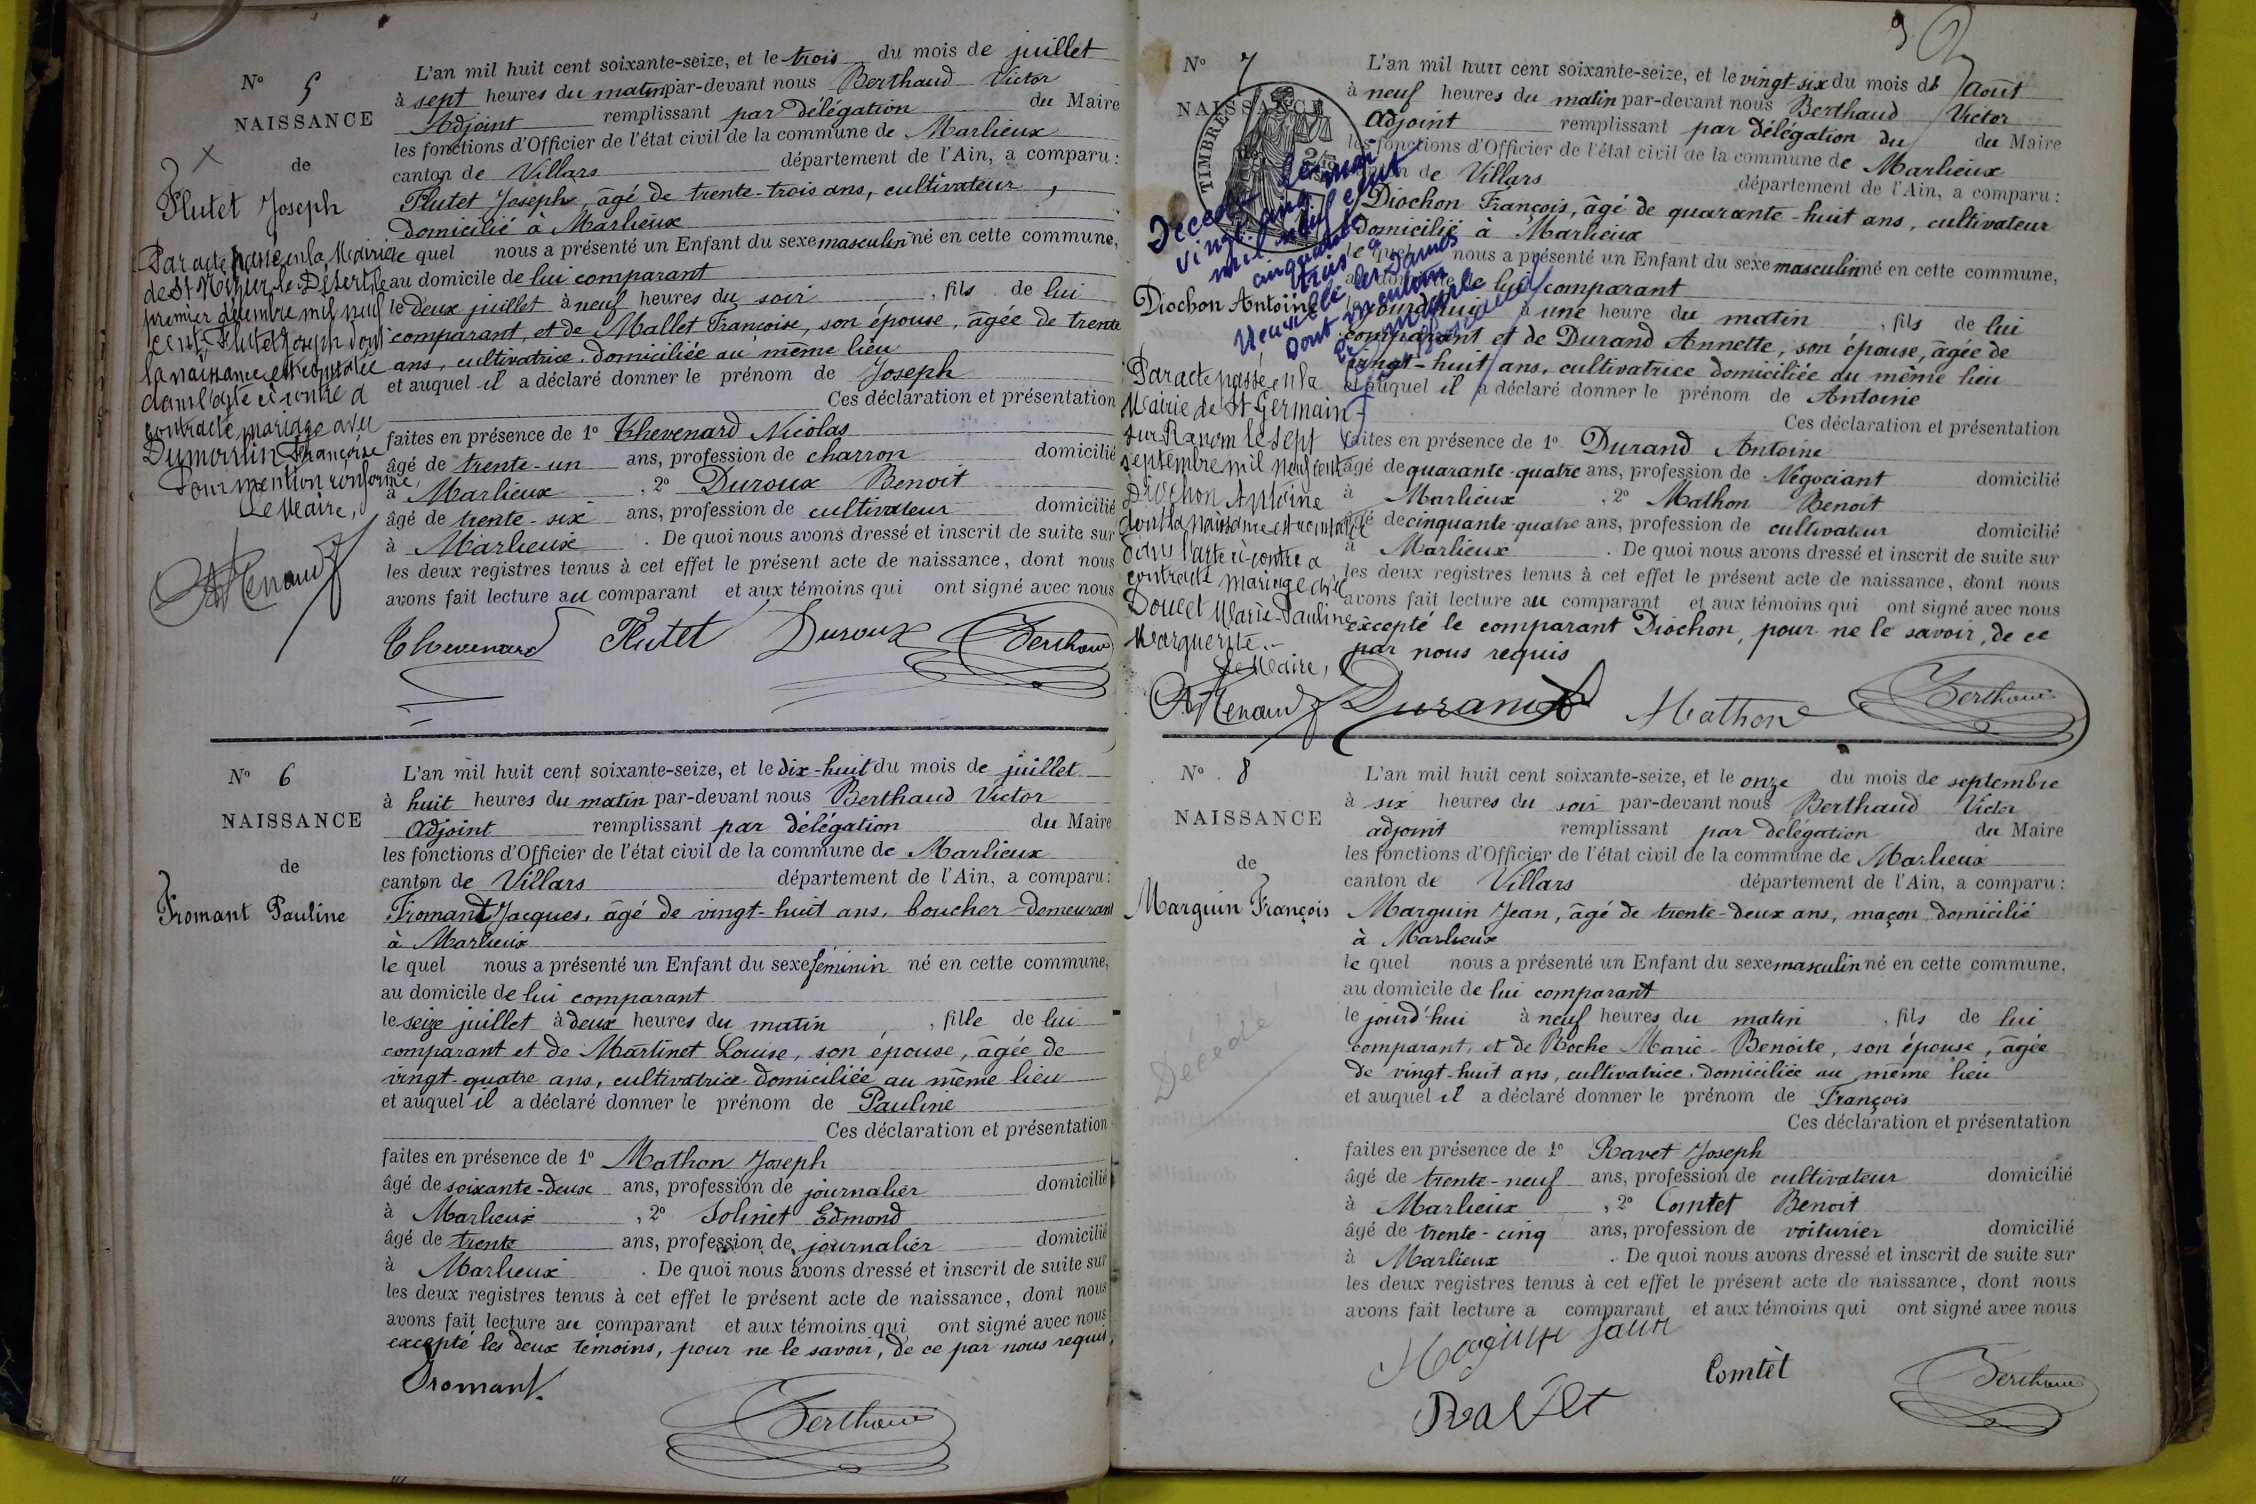 N° 5
NAISSANCE
de
Flutet Joseph
Par acte passé en la Mairie
de St Nizier le Désert le
premier décembre mil neuf
cent, Flutet Joseph dont
la naissance est constatée
dans l'acte ci-contre a
contracté mariage avec
Dumoulin Françoise
Pour mention conforme,
Le Maire,
L'an mil huit cent soixante-seize, et le trois du mois de juillet
à sept heures du matin par-devant nous Berthaud Victor
Adjoint remplissant par délégation du Maire
les fonctions d'Officier de l'état civil de la commune de Marlieux
canton de Villars département de l'Ain, a comparu :
Flutet Joseph, âgé de trente-trois ans, cultivateur,
domicilié à Marlieux
le quel nous a présenté un Enfant du sexe masculin né en cette commune,
au domicile de lui comparant
le deux juillet à neuf heures du soir, fils de lui
comparant, et de Mallet Françoise, son épouse, âgée de trente
ans, cultivatrice domiciliée au même lieu
et auquel il a déclaré donner le prénom de Joseph
Ces déclaration et présentation
faites en présence de 1° Thevenard Nicolas
âgé de trente-un ans, profession de charron domicilié
à Marlieux, 2° Duroux Benoit
âgé de trente-six ans, profession de cultivateur domicilié
à Marlieux. De quoi nous avons dressé et inscrit de suite sur
les deux registres tenus à cet effet le présent acte de naissance, dont nous
avons fait lecture au comparant et aux témoins qui ont signé avec nous
Thevenard Flutet Duroux Berthaud
N° 6
NAISSANCE
de
Fromant Pauline
L'an mil huit cent soixante-seize, et le dix-huit du mois de juillet
à huit heures du matin par-devant nous Berthaud Victor
adjoint remplissant par délégation du Maire
les fonctions d'Officier de l'état civil de la commune de Marlieux
canton de Villars département de l'Ain, a comparu :
Fromant Jacques, âgé de vingt-huit ans, boucher demeurant
à Marlieux
le quel nous a présenté un Enfant du sexe féminin né en cette commune,
au domicile de lui comparant
le seize juillet à deux heures du matin, fille de lui
comparant et de Martinet Louise, son épouse, âgée de
vingt-quatre ans, cultivatrice domiciliée au même lieu
et auquel il a déclaré donner le prénom de Pauline
Ces déclaration et présentation
faites en présence de 1° Mathon Joseph
âgé de soixante-deux ans, profession de journalier domicilié
à Marlieux, 2° Solinet Edmond
âgé de trente ans, profession de journalier domicilié
à Marlieux. De quoi nous avons dressé et inscrit de suite sur
les deux registres tenus à cet effet le présent acte de naissance, dont nous
avons fait lecture au comparant et aux témoins qui ont signé avec nous
excepté les deux témoins, pour ne le savoir, de ce par nous requis,
Fromant
Berthaud
N° 7
NAISSANCE
TIMBRE
Décédé le
vingt cinq mai
mil neuf cent
cinquante
trois à
Neuville les Dames
Dont mention
Diochon Antoine
Par acte passé en la
Mairie de St Germain
sur Renom le sept
septembre mil neuf cent
Diochon Antoine
dont la naissance est constatée
dans l'acte ci-contre a
contracté mariage avec
Doucet Marie-Pauline
Marguerite.-
Le Maire,
L'an mil huit cent soixante-seize, et le vingt six du mois de août
à neuf heures du matin par-devant nous Berthaud Victor
adjoint remplissant par délégation du du Maire
les fonctions d'Officier de l'état civil de la commune de Marlieux
canton de Villars département de l'Ain, a comparu :
Diochon François, âgé de quarante-huit ans, cultivateur
domicilié à Marlieux
le quel nous a présenté un Enfant du sexe masculin né en cette commune,
au domicile de lui comparant
le jourd'hui à une heure du matin, fils de lui
comparant et de Durand Annette, son épouse, âgée de
vingt-huit ans, cultivatrice domiciliée au même lieu
et auquel il a déclaré donner le prénom de Antoine
Ces déclaration et présentation
faites en présence de 1° Durand Antoine
âgé de quarante-quatre ans, profession de Négociant domicilié
à Marlieux, 2° Mathon Benoit
âgé de cinquante-quatre ans, profession de cultivateur domicilié
à Marlieux. De quoi nous avons dressé et inscrit de suite sur
les deux registres tenus à cet effet le présent acte de naissance, dont nous
avons fait lecture au comparant et aux témoins qui ont signé avec nous
excepté le comparant Diochon, pour ne le savoir, de ce
par nous requis
Durand Mathon Berthaud
N° 8
NAISSANCE
de
Marguin François
Décédé
L'an mil huit cent soixante-seize, et le onze du mois de septembre
à six heures du soir par-devant nous Berthaud Victor
adjoint remplissant par délégation du Maire
les fonctions d'Officier de l'état civil de la commune de Marlieux
canton de Villars département de l'Ain, a comparu :
Marguin Jean, âgé de trente-deux ans, maçon domicilié
à Marlieux
le quel nous a présenté un Enfant du sexe masculin né en cette commune,
au domicile de lui comparant
le jourd'hui à neuf heures du matin, fils de lui
comparant, et de Roche Marie-Benoite, son épouse, âgée
de vingt-huit ans, cultivatrice domiciliée au même lieu
et auquel il a déclaré donner le prénom de François
Ces déclaration et présentation
faites en présence de 1° Ravet Joseph
âgé de trente-neuf ans, profession de cultivateur domicilié
à Marlieux, 2° Comtet Benoit
âgé de trente-cinq ans, profession de voiturier domicilié
à Marlieux. De quoi nous avons dressé et inscrit de suite sur
les deux registres tenus à cet effet le présent acte de naissance, dont nous
avons fait lecture a comparant et aux témoins qui ont signé avec nous
Comtet Berthaud
Ravet